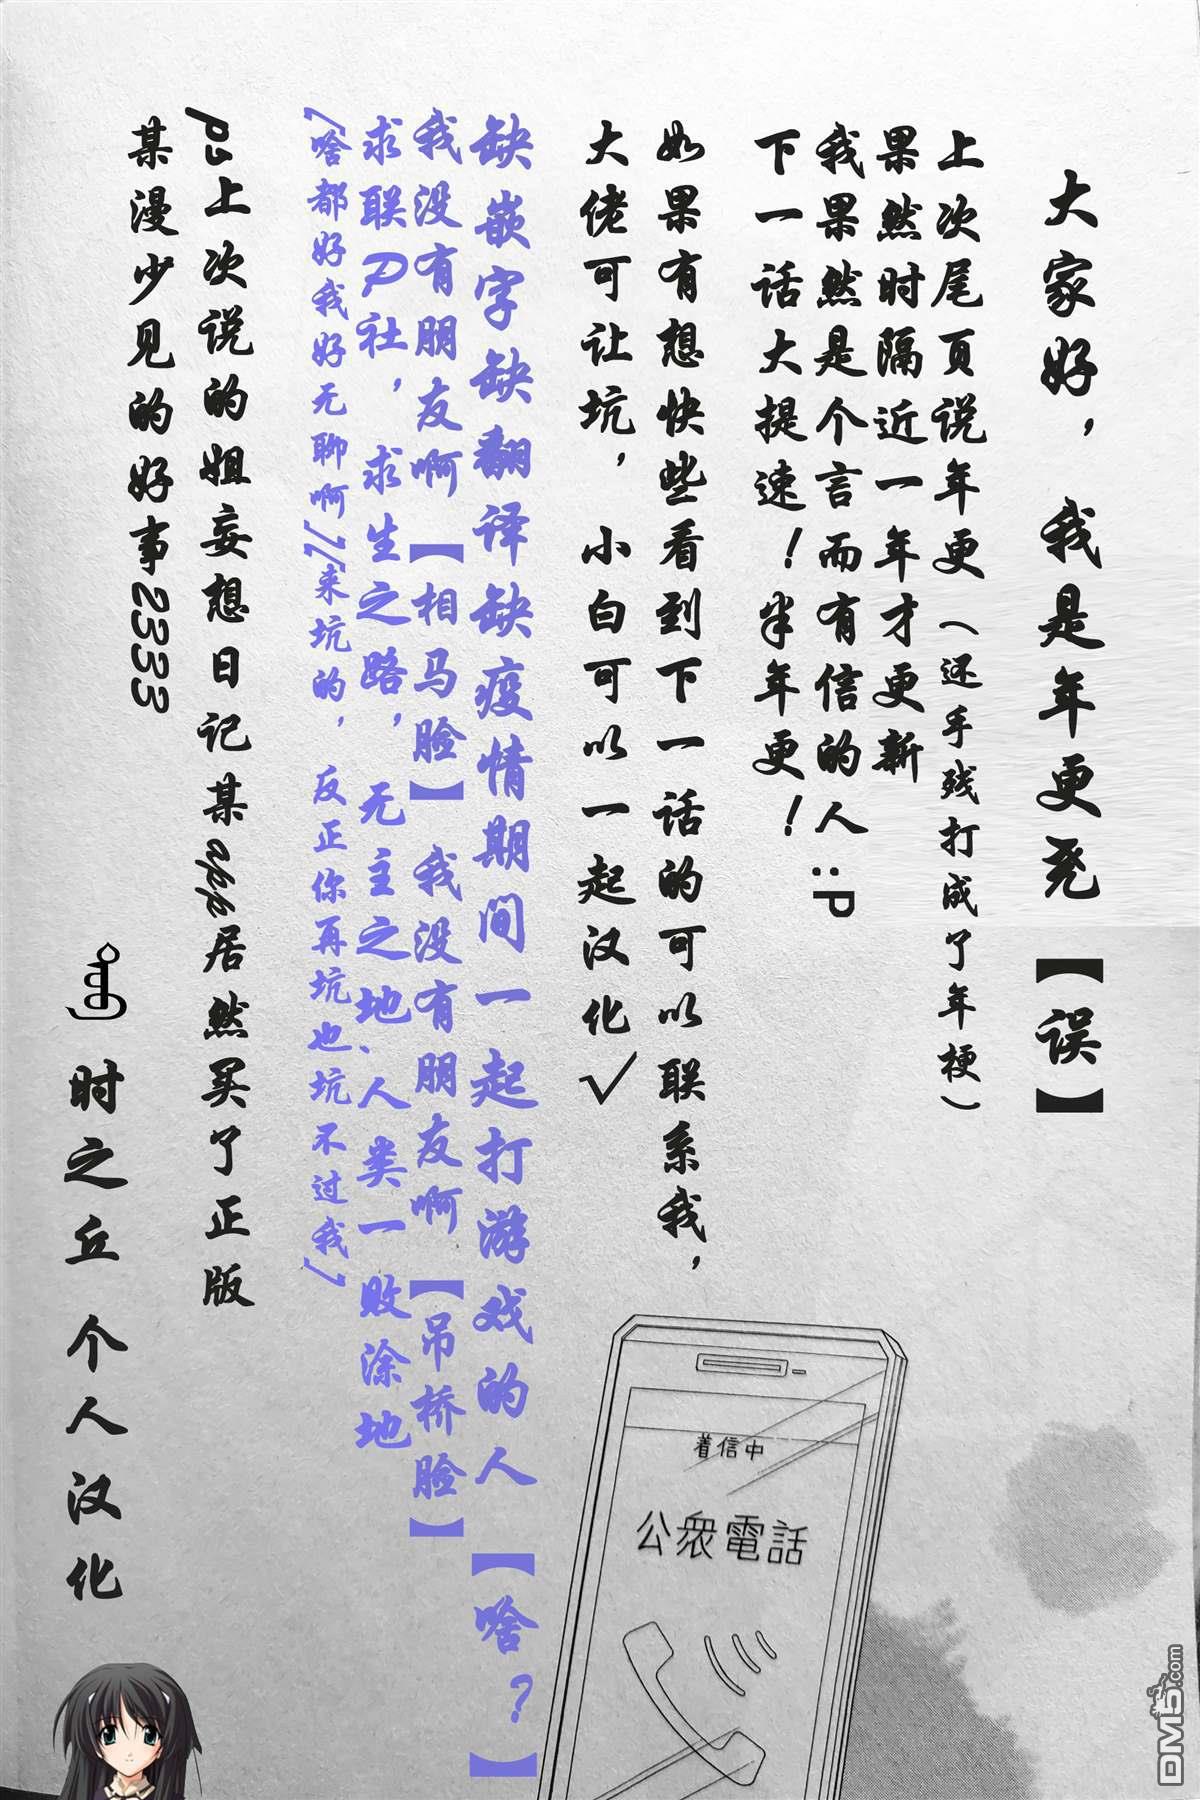 大家好，我是年更尧【误】
上次尾页说年更（还手残打成了年梗）
果然时隔近一年才更新
我果然是个言而有信的人:P
下一话大提速！半年更！
如果有想快些看到下一话的可以联系我，
大佬可让坑，小白可以一起汉化√
缺嵌字缺翻译缺疫情期间一起打游戏的人【啥？】
我没有朋友啊【相马脸】我没有朋友啊【吊桥脸】
求联P社，求生之路，无主之地、人类一败涂地
(啥都好我好无聊啊)(来坑的，反正你再坑也坑不过我)
ps上次说的姐妄想日记某app居然买了正版
某漫少见的好事2333
时之丘 个人汉化
着信中
公衆電話
DM5.com